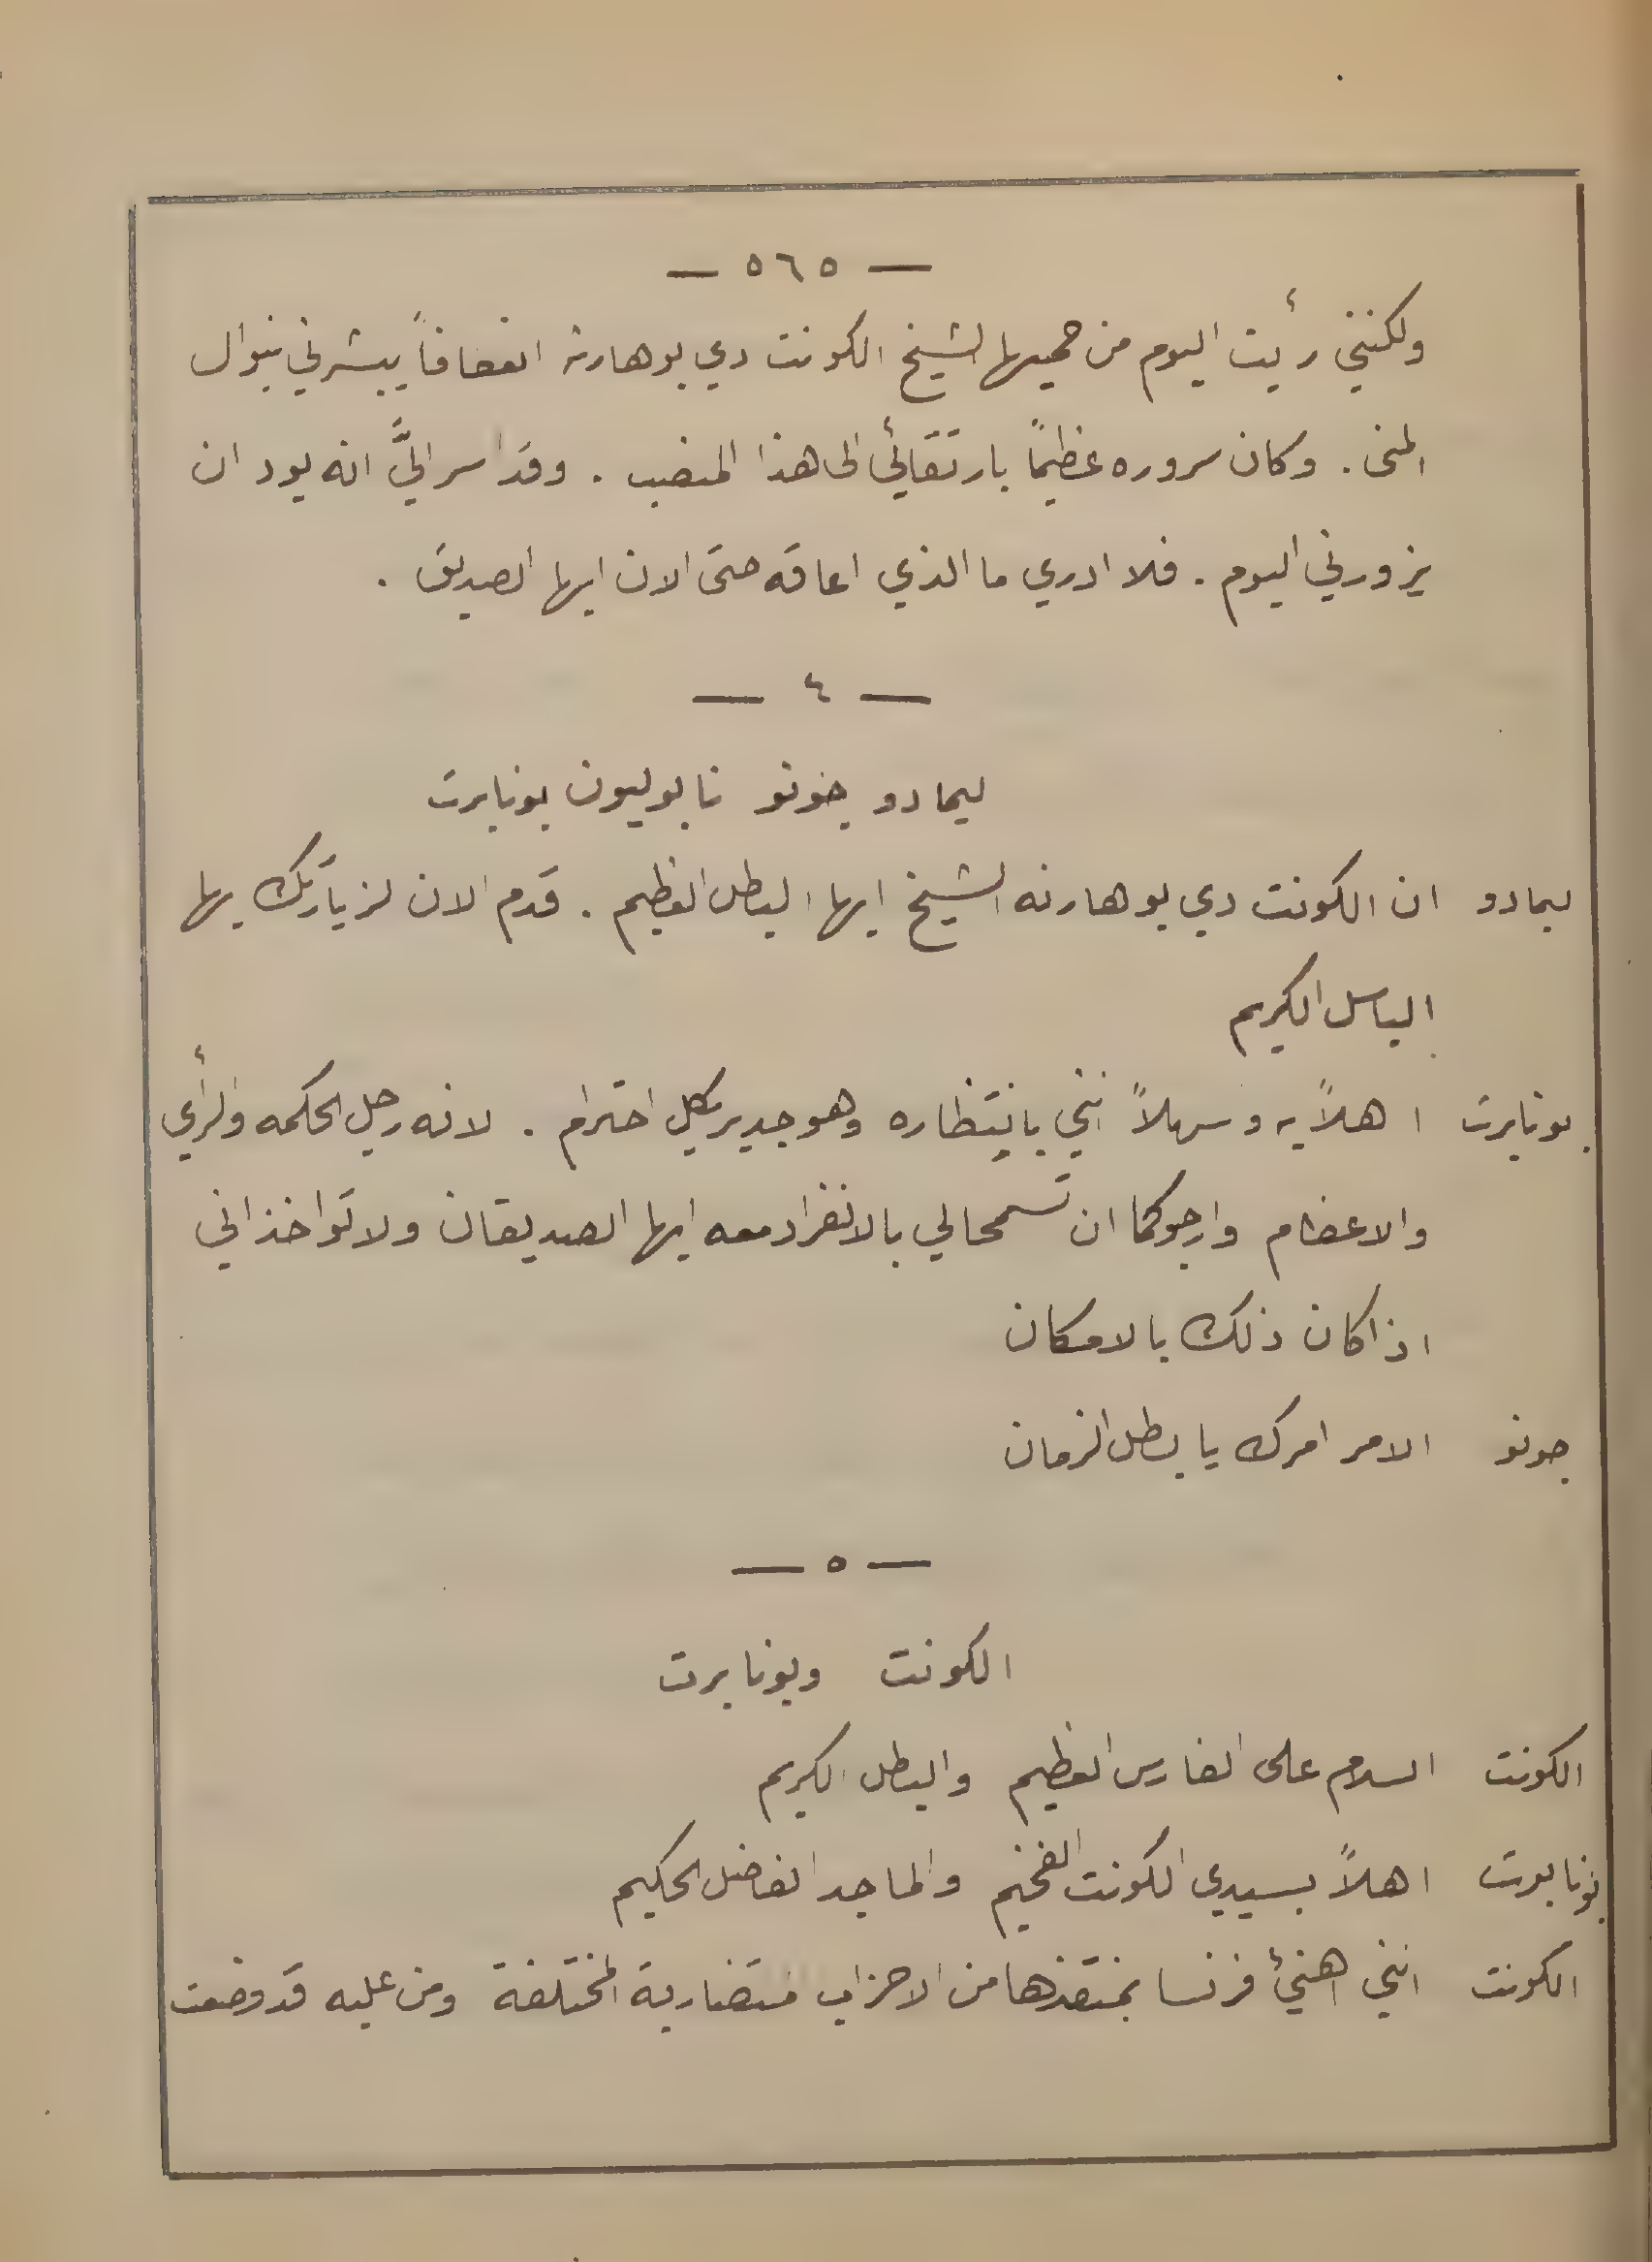 — ٥٦٥ —
ولكنني رأيت اليوم من حميها الشيخ الكونت دي بوهارنه انعطافاً يبشرني بنوال
المنى . وكان سروره عظيماً بارتقائي الى هذا المنصب . وقد اسر اليَّ انه يود ان
يزورني اليوم . فلا ادري ما الذي اعاقه حتى الان ايها الصديق .
— ٤ —
ليمادو جونو نابوليون بونابرت
ليمادو ان الكونت دي بوهارنه الشيخ ايها البطل العظيم . قدم الان لزيارتك ايها
الباسل الكريم
بونابرت اهلاً به وسهلاً انني بانتظاره وهو جدير بكل احترام . لانه رجل الحكمه والرأي
والاعظام وارجوكما ان تسمحالي بالانفراد معه ايها الصديقان ولا تواخذاني
اذا كان ذلك بالامكان
جونو الامر امرك يا بطل الزمان
— ٥ —
الكونت وبونابرت
الكونت السلام على الفارس العظيم والبطل الكريم
بونابرت اهلاً بسيدي الكونت الفخيم والماجد الفاضل الحكيم
الكونت انني اهنئ فرنسا بمنقذها من الاحزاب متضاربة المختلفة ومن عليه قد وضعت